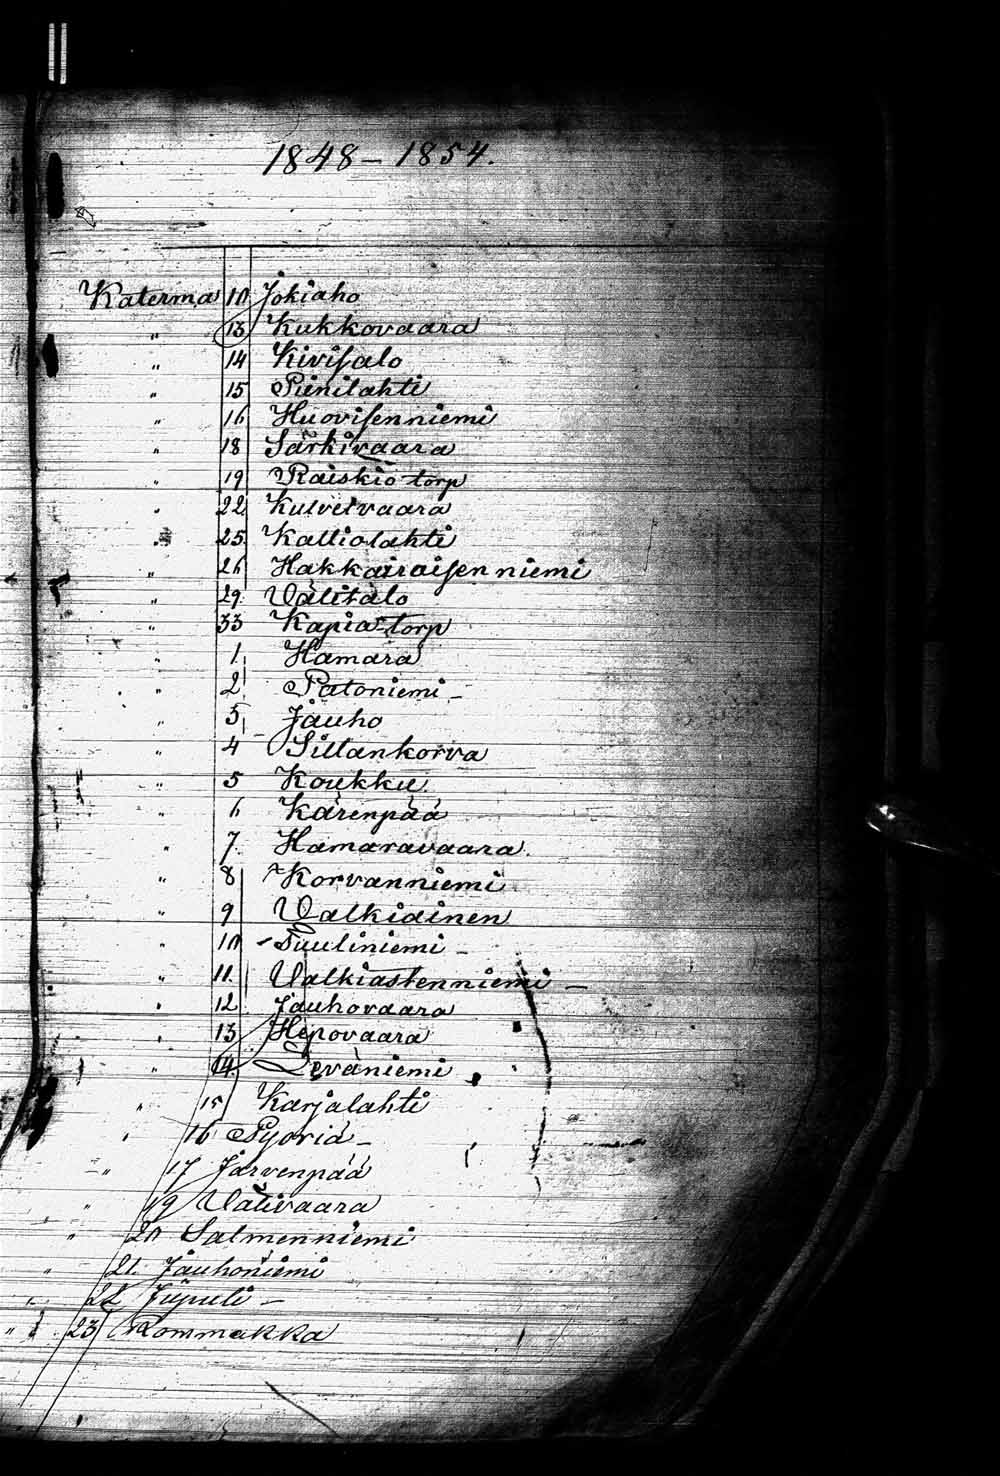 1848 – 1854.
Katerma 10 Jokiaho
" 13 Kukkovaara
" 14 Kivisalo
" 15 Pienilahti
" 16 Huovisenniemi
" 18 Särkivaara
" 19 Raiskio torp
" 22 Kulvetvaara
" 25 Kalliolahti
" 26 Hakkaraisen niemi
" 29. Välitalo
" 33 Kapia torp
" 1 Hamara
" 2 Patoniemi –
" 3 Jauho
" 4 Siltankorva
" 5 Koukku.
" 6 Kärenpää
" 7. Hamaravaara.
" 8 Korvanniemi
" 9 Valkiainen
" 10 Puuliniemi –
" 11. Valkiastenniemi –
" 12 Jauhovaara
" 13 Hepovaara
" 14. Leväniemi
" 15 Karjalahti
" 16 Pyöriä –
" 17 Järvenpää
" 19 Välivaara
" 20 Salmenniemi
" 21. Jauhoniemi
" 22 Jüpuli –
" 23 Rommakka